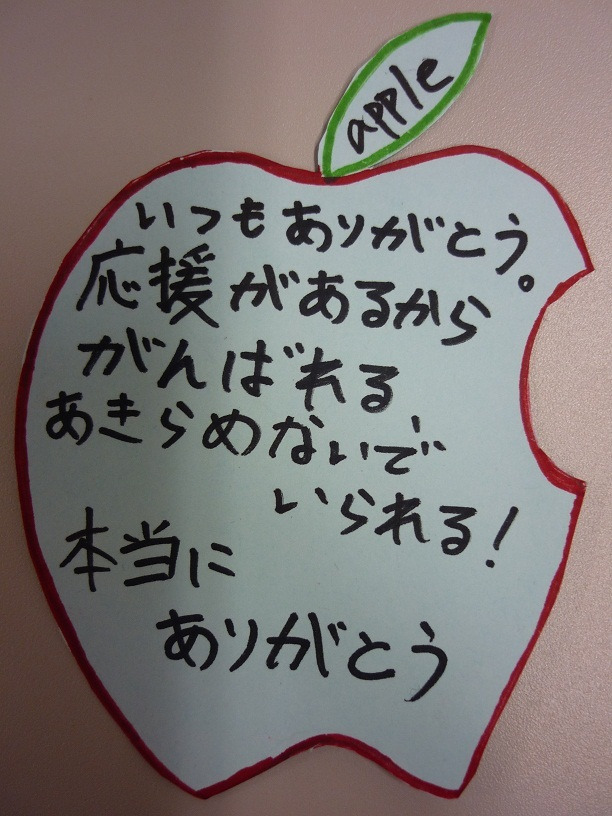 apple
いつもありがとう。
応援があるから
がんばれる、
あきらめないで
いられる!
本当に
ありがとう